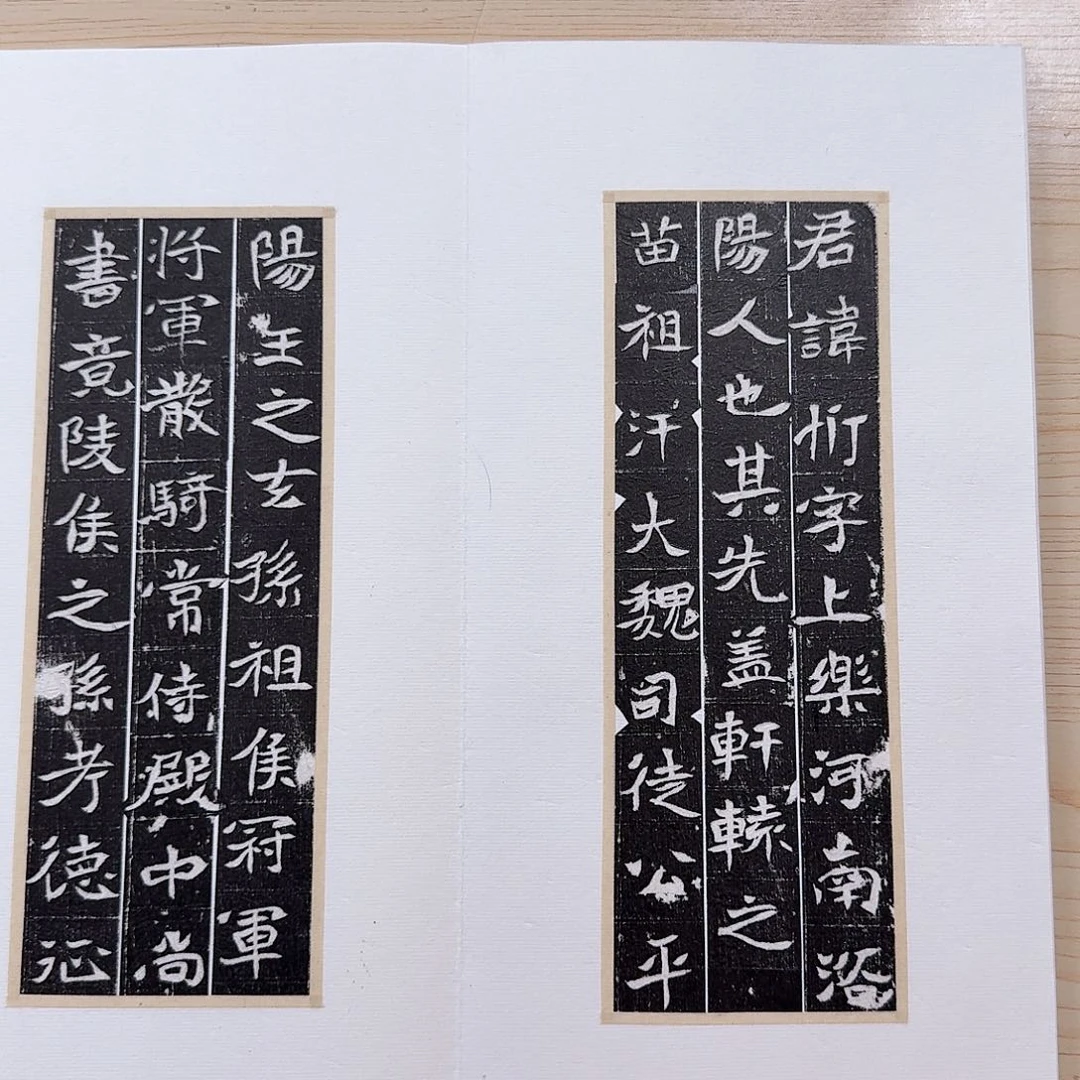 君諱忻字上樂河南洛
陽人也其先盖軒轅之
苗祖汗大魏司徒公平
陽王之玄孫祖侯冠軍
将軍散騎常侍殿中尚
書竟陵侯之孫考德征